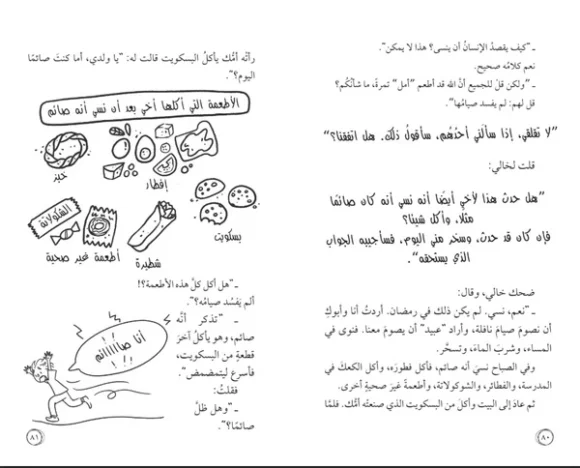 ـ "كيف يقصدُ الإنسانُ أن ينسى؟ هذا لا يمكن".
نعم كلامُه صحيح.
ـ "ولكن قلْ للجميع أنَّ الله قد أطعم "أمل" تمرةً، ما شأنُكُم؟
قل لهم: لم يفسد صيامُها".
"لا تقلقي، إذا سألني أحدُهُم، سأقولُ ذلك. هل اتفقنا؟"
قلت لخالي:
"هل حدث هذا لأخي أيضًا أنه نسي أنه كان صائمًا
مثلا، وأكل شيئًا؟
فإن كان قد حدث، وسخر مني اليوم، فسأجيبه الجواب
الذي يستحقه".
ضحك خالي، وقال:
ـ "نعم، نسي. لم يكن ذلك في رمضان. أردتُ أنا وأبوكِ
أن نصومَ صيامَ نافلة، وأراد "عبيد" أن يصومَ معنا. فنوى في
المساء، وشربَ الماءَ، وتسحَّر.
وفي الصباح نسيَ أنه صائم، فأكل فطورَه، وأكل الكعكَ في
المدرسة، والفطائر، والشوكولاتة، وأطعمةً غيرَ صحيةٍ أخرى.
ثم عادَ إلى البيت وأكلَ من البسكويت الذي صنعتْه أمُّك. فلمَّا
٨٠
رأتْه أمُّك يأكلُ البسكويت قالت له: "يا ولدي، أما كنتَ صائمًا
اليوم؟".
الأطعمة التي أكلها أخي بعد أن نسي أنه صائم
خبز
إفطار
بسكويت
الشكولاتة
أطعمة غير صحية
شطيرة
ـ "هل أكل كلَّ هذه الأطعمة؟!
ألم يَفسُد صيامُه؟".
ـ "تذكر أنَّه
صائم، وهو يأكلُ آخرَ
قطعةٍ من البسكويت،
فأسرع ليتمضمض".
فقلتُ:
ـ "وهل ظلَّ
صائمًا؟".
أنا صاااائم
!!
!!!
٨١